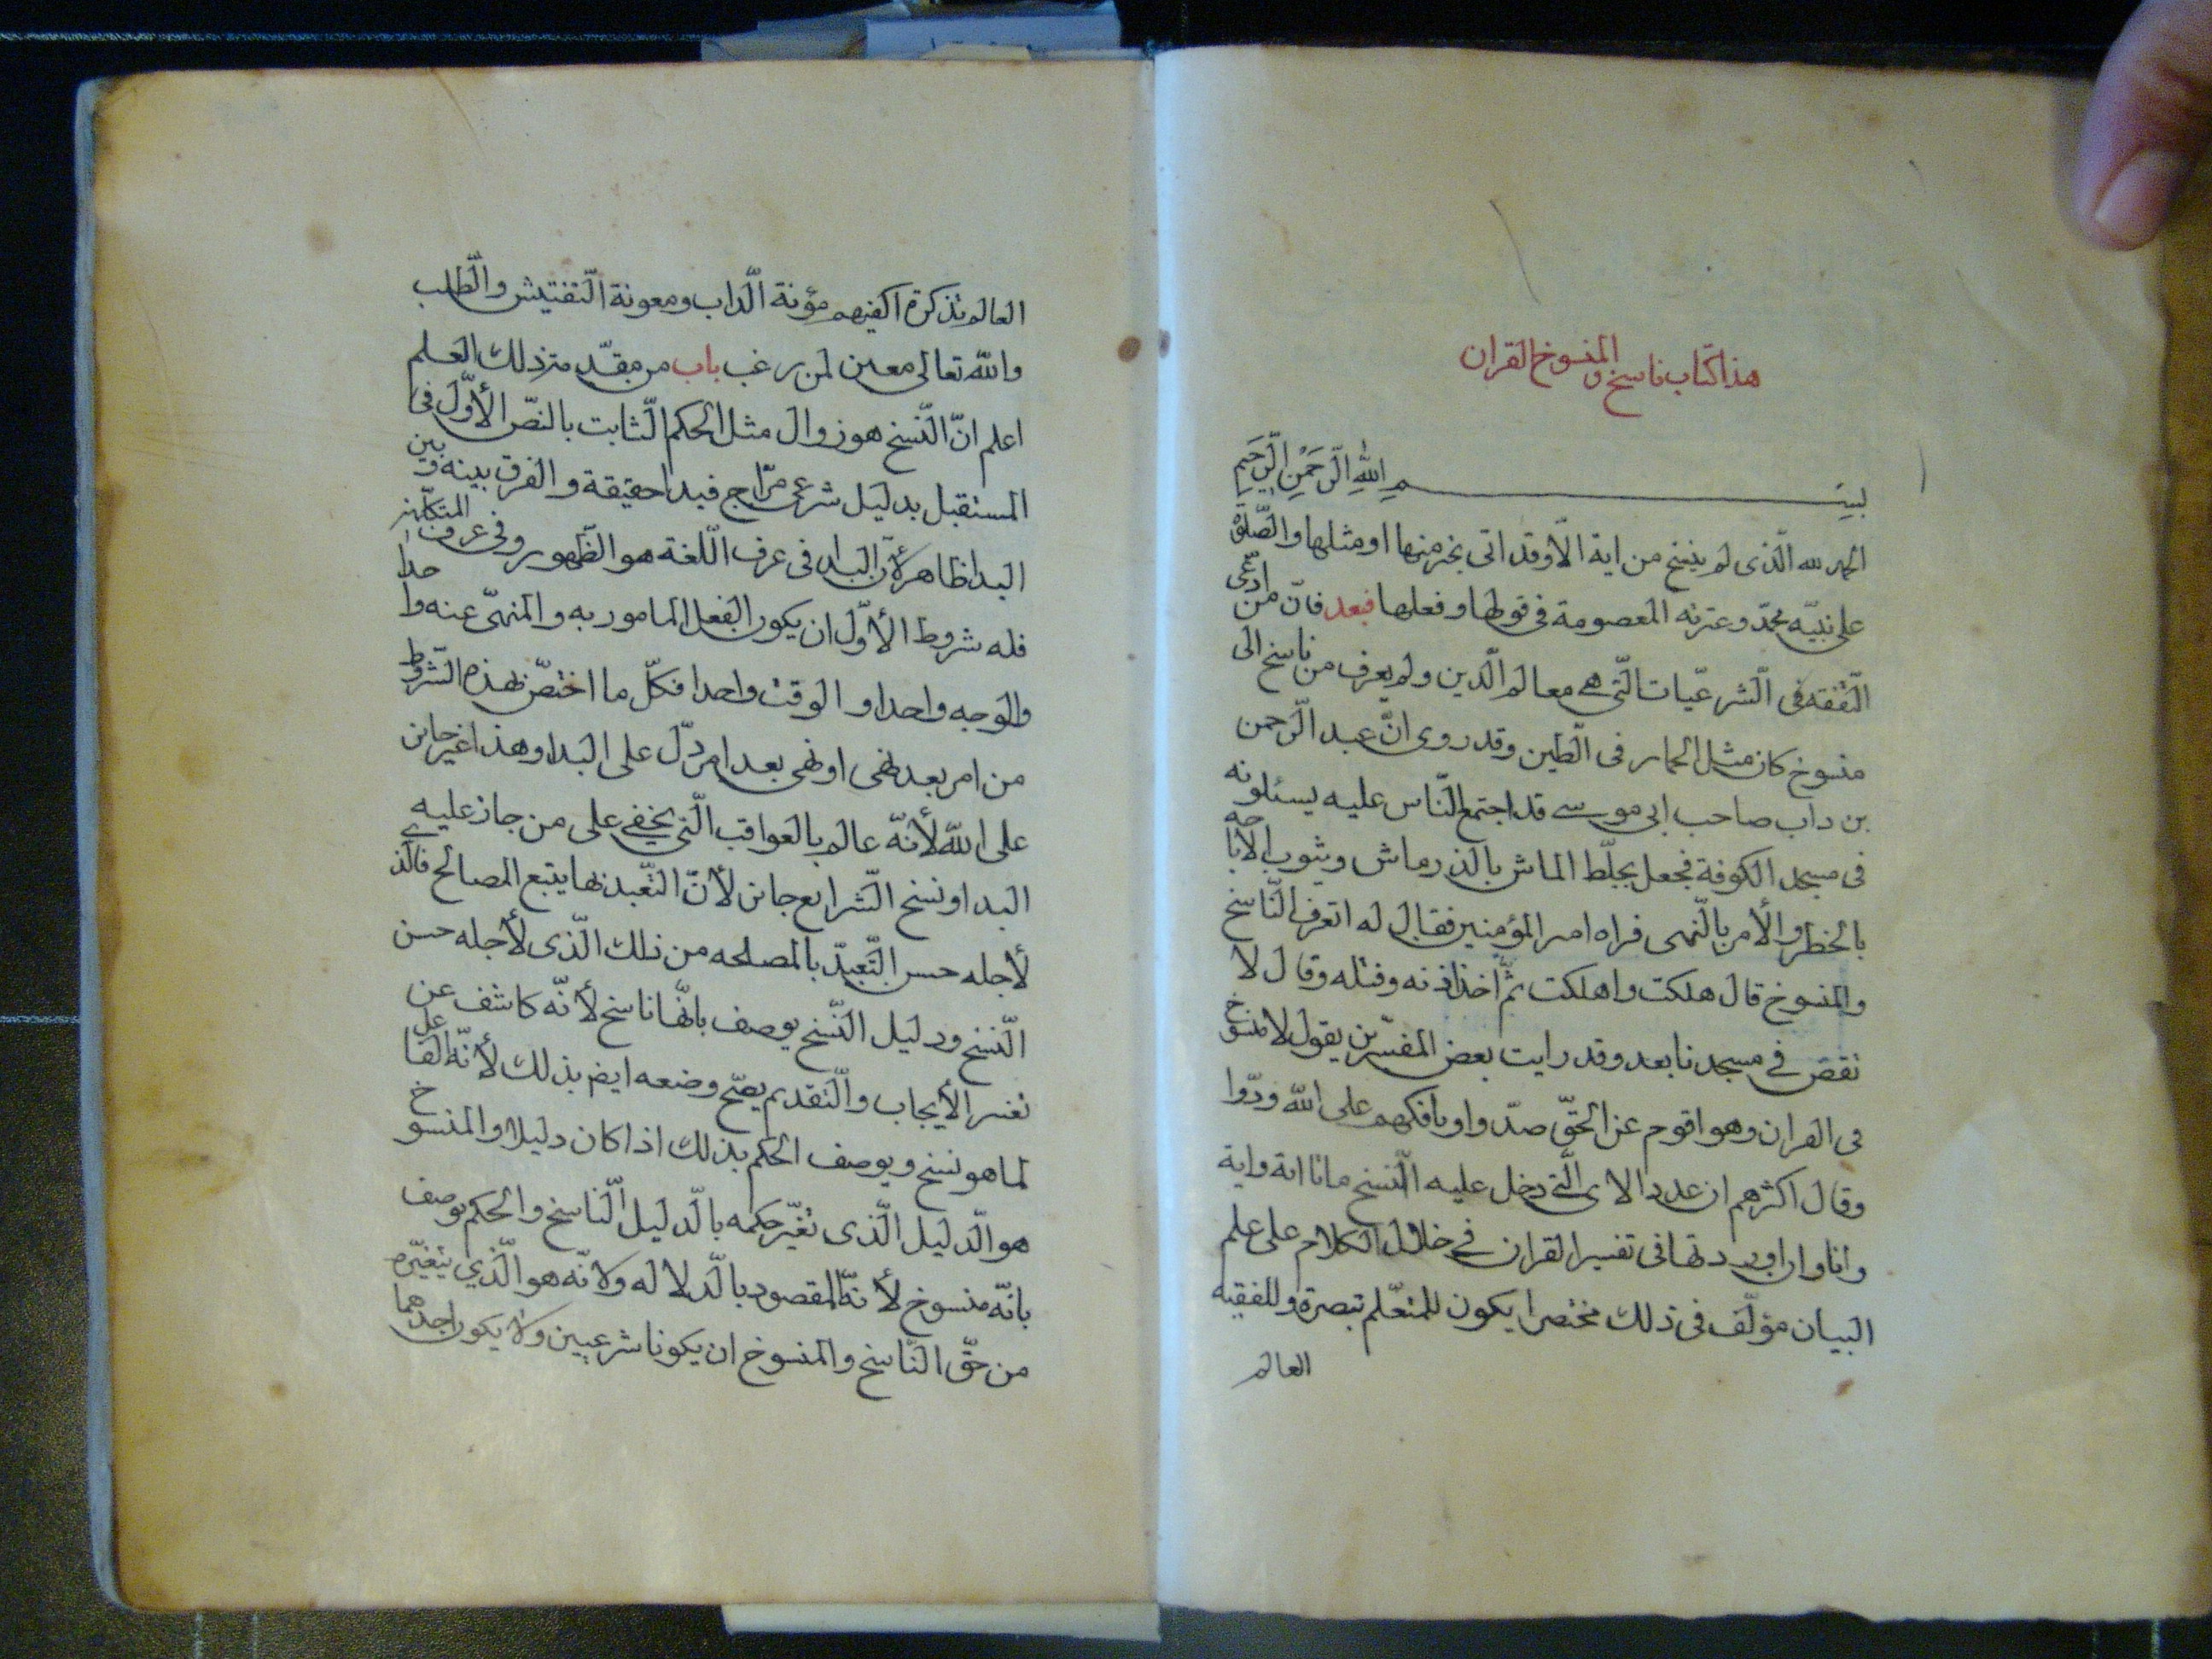 هذا كتاب ناسخ والمنسوخ القران
بسم الله الرحمن الرحيم
الحمد لله الّذى لم ينسخ من اية الّا وقد اتى بخير منها او مثلها والصّلوة
على نبيّه محمّد وعترته المعصومة فى قولها وفعلها فبعد فانّ من ادّعى
التّفقه فى الّشرعيّات الّتى هى معالم الّدين ولم يعرف من ناسخ الى
منسوخ كان مثل الحمار فى الّطين وقد روى انّ عبد الّرحمن
بن داب صاحب ابى موسى قد اجتمع النّاس عليه يسئلونه
فى مسجد الكوفة فجعل يخلّط الماش بالدرماش ويثوب الاباحه
بالخطر والأمر بالّنهى فراه امير المؤمنين فقال له اتعرف النّاسخ
والمنسوخ قال هلكت واهلكت ثمّ اخذ اذنه وفتله وقال لا
تقض فى مسجدنا بعد وقد رايت بعض المفسّرين يقول لا منسوخ
فى القران وهو اقوم عن الحقّ صدّوا وبافكهم على الله ودّوا
وقال اكثرهم ان عدد الاى الّتى دخل عليه الّنسخ ماتا اية واية
وانا وان اوردتها فى تفسير القران فى خلال الكلام على علم
البيان مؤلّف فى ذلك مختصرا يكون للمتعّلم تبصرة وللفقيه
العالم
العالم تذكرة اكفيهم مؤنة الّداب ومعونة الّتفتيش والّطلب
والله تعالى معين لمن رغب باب من مقدّمته ذلك العلم
اعلم انّ الّنسخ هو زوال مثل الحكم الّثابت بالنصّ الأوّل فى
المستقبل بدليل شرعى متراج فيدا حقيقة والفرق بينه وبين
البدا ظاهر لأنّ البدا فى عرف الّلغة هو الّظهور وفى عرف المتكلّمين
فله شروط الأوّل ان يكون الفعل المامور به والمنهىّ عنه واحدا
والوجه واحدا والوقت واحدا فكلّ ما اختصّ بهذه الّشروط
من امر بعد نهى او نهى بعد امر دّل على البدا وهذا غير جائز
على الله لأنّه عالم بالعواقب الّتى يخفى على من جاز عليه
البدا ونسخ الّشرايع جائز لأنّ التّعبد بها يتبع المصالح فالّذى
لأجله حسن التّعبدّ بالمصلحه من ذلك الّذى لأجله حسن
الّنسخ ودليل النّسخ يوصف بانّها ناسخ لأنّه كاشف عن
تغير الأيجاب والّتقديم يصّح وضعه ايض بذلك لأنّه الفاعل
لما هو نسخ ويوصف الحكم بذلك اذا كان دليلا والمنسوخ
هو الّدليل الّذى تغيّر حكمه بالّدليل الّناسخ والحكم يوصف
بانّه منسوخ لأنّه المقصود بالّدلاله ولانّه هو الّذي يتغيّره
من حقّ النّاسخ والمنسوخ ان يكونا شرعيين ولا يكون احدهما